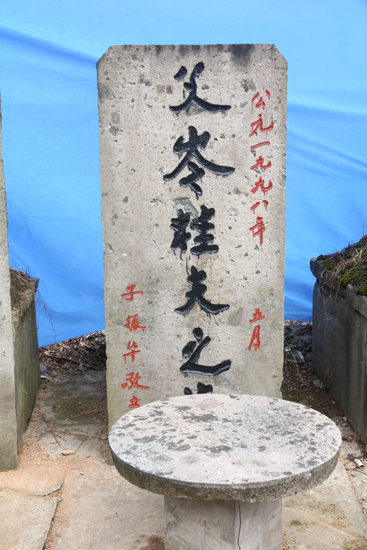 公元一九九八年 五月
父岑桂夫之
子振华敬立